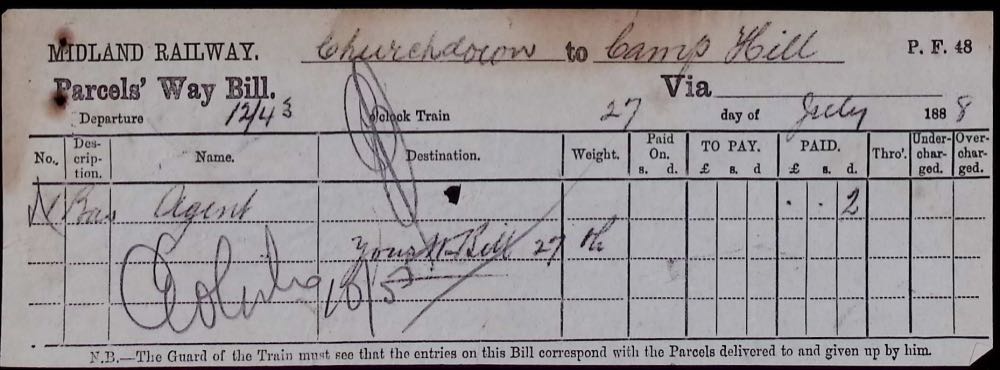 MIDLAND RAILWAY. Churchdown to Camp Hill P. F. 48
Parcels' Way Bill. Via
Departure 12/43 o'clock Train 27 day of July 1888
No. Des-crip-tion. Name. Destination. Weight. Paid On. s. d. TO PAY. £ s. d PAID. £ s. d. Thro'. Under-char-ged. Over-char-ged.
Agent . . 2
Your W Bill 27
10/53
N.B.—The Guard of the Train must see that the entries on this Bill correspond with the Parcels delivered to and given up by him.